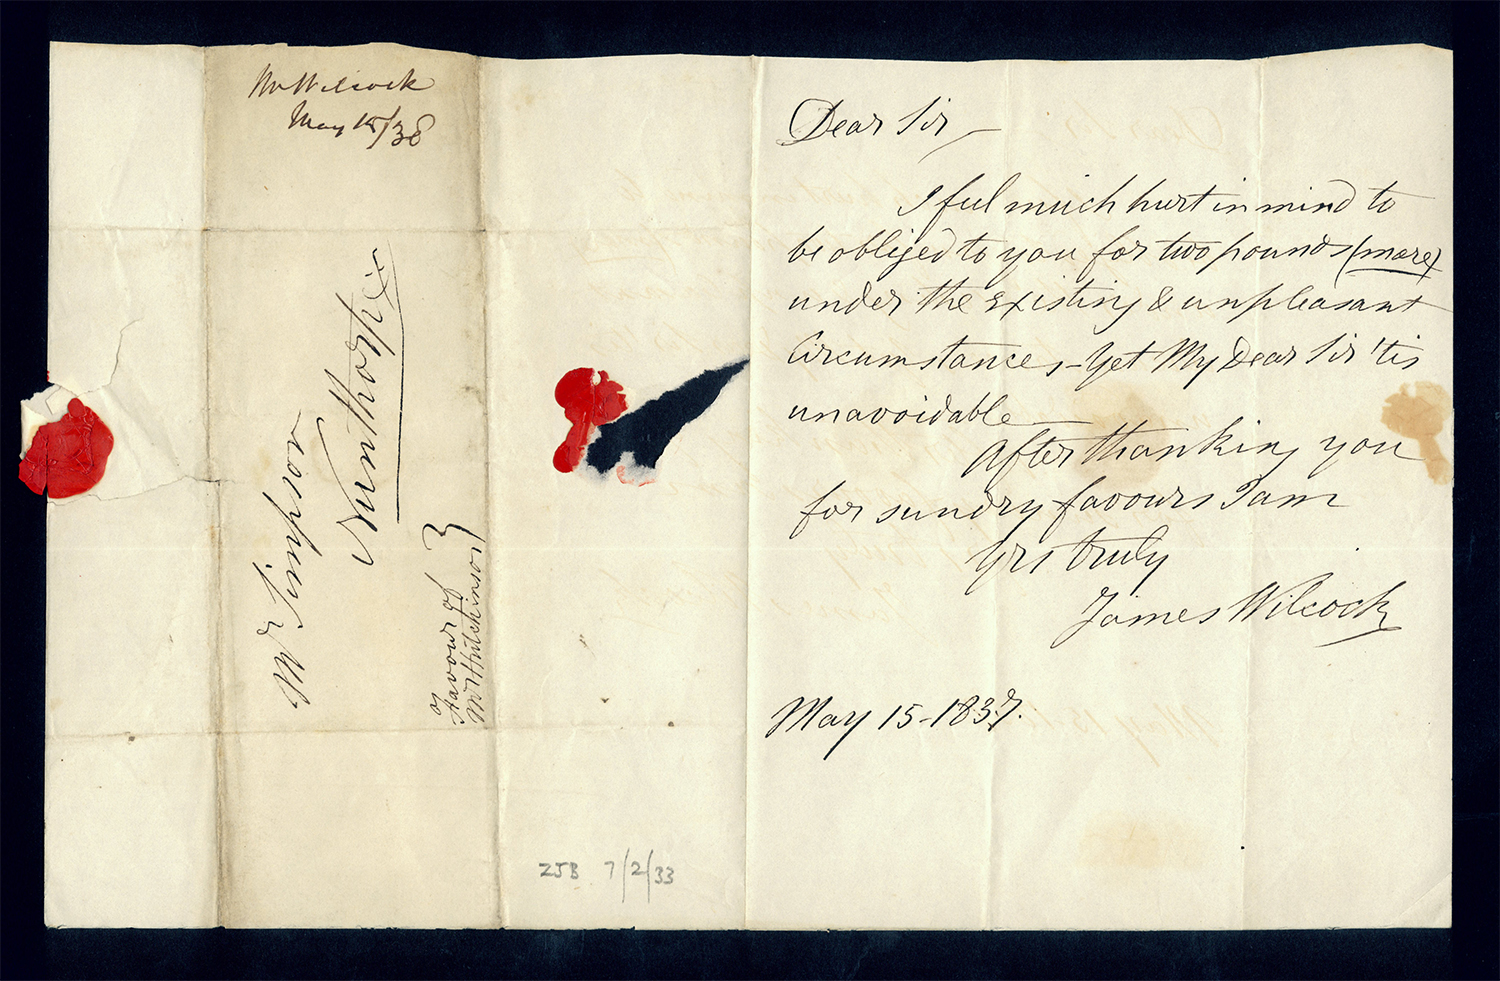 Mr Wilcock
May 15/38
Mr Simpson
Nunthorpe
Favour of
Mr Hutchinson
ZJB 7/2/33
Dear Sir
I feel much hurt in mind to
be obliged to you for two pounds (more)
under the existing & unpleasant
Circumstances - Yet My Dear Sir 'tis
unavoidable
After thanking you
for sundry favours I am
Yrs truly
James Wilcock
May 15 - 1837.